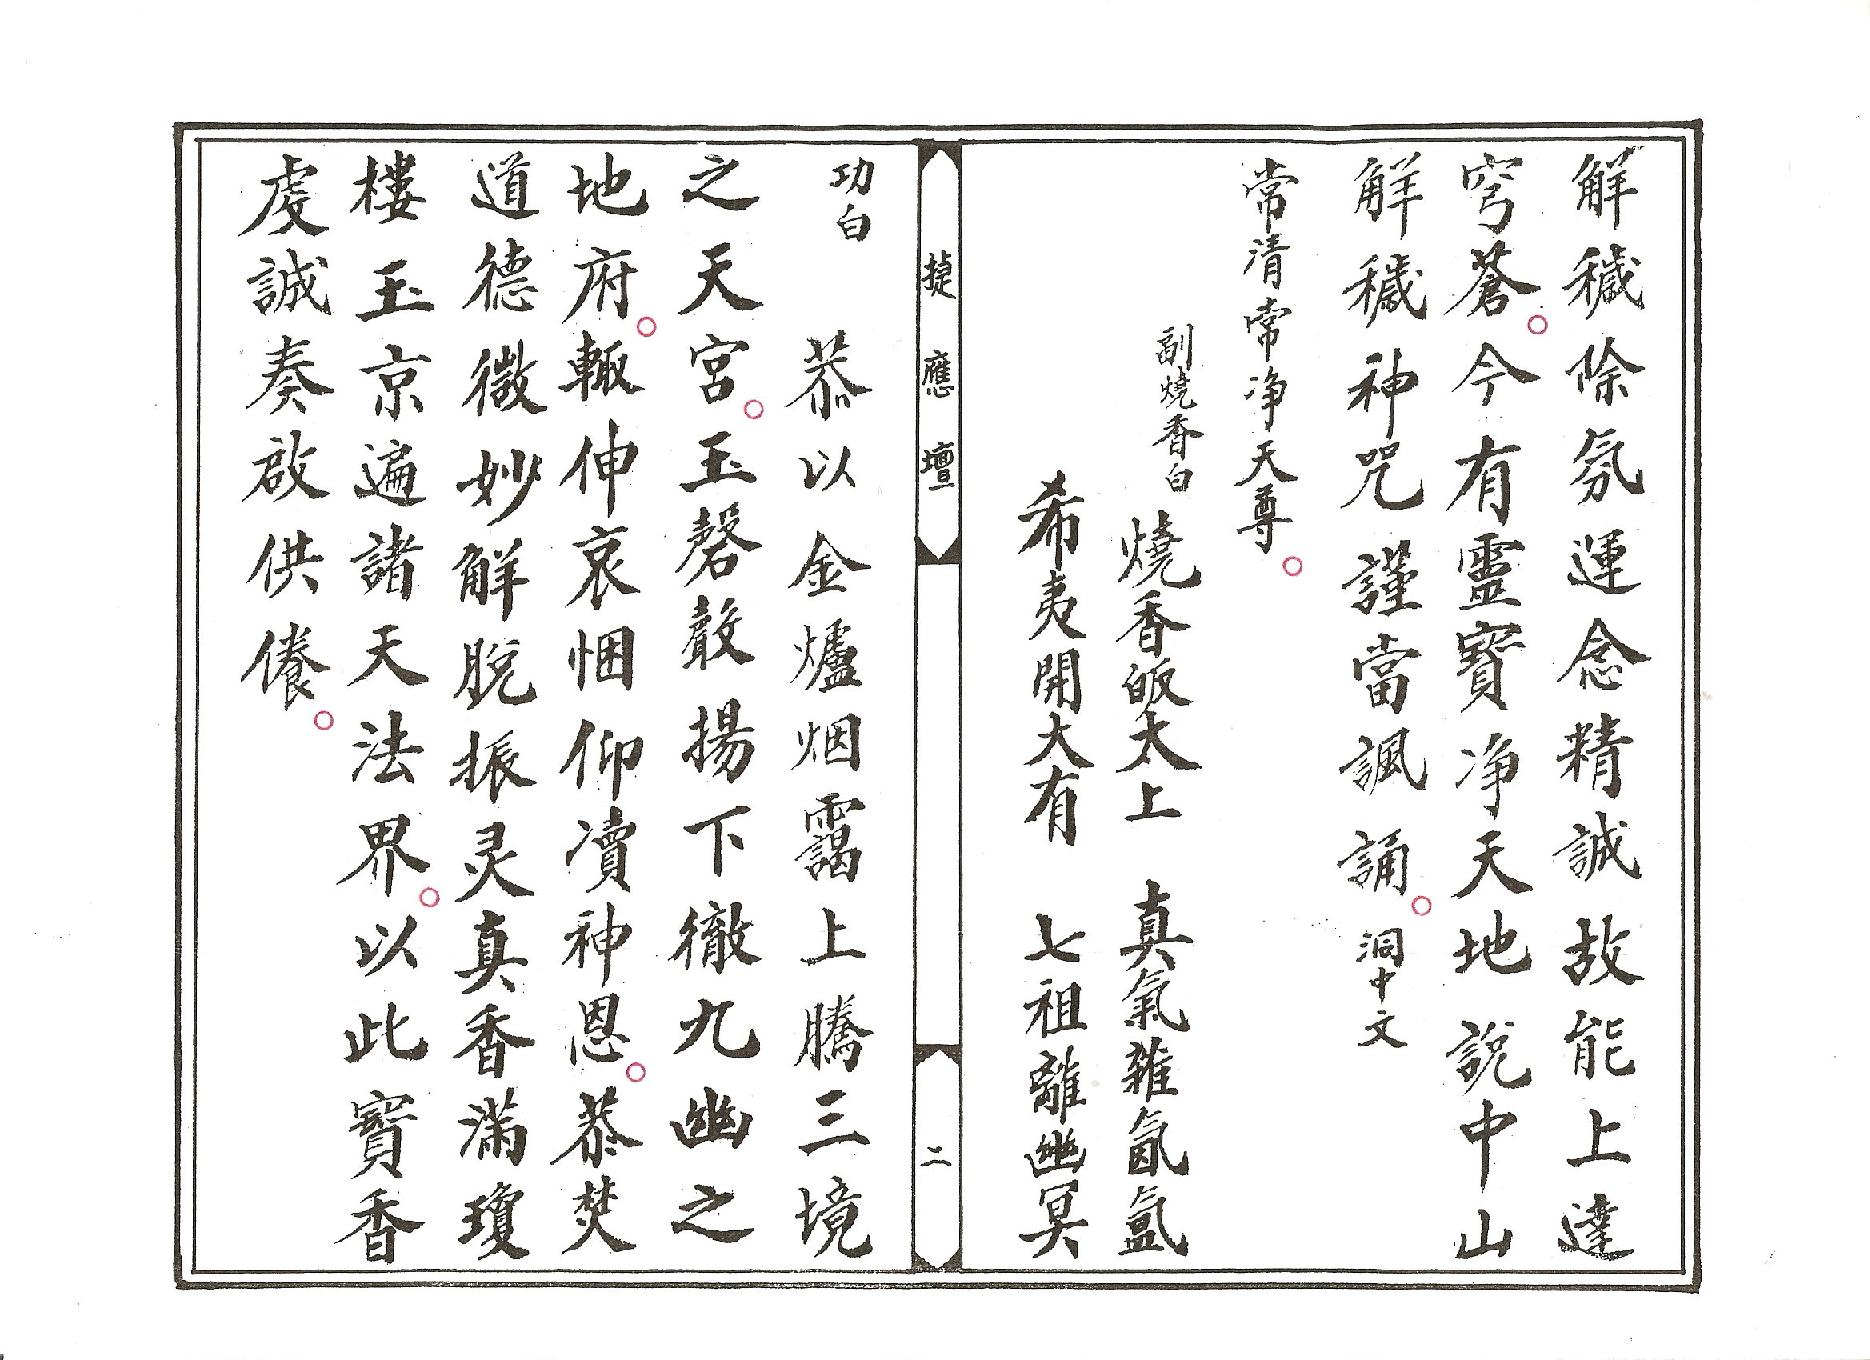 解穢除氛運念精誠故能上達
穹蒼。今有靈寶净天地說中山
解穢神咒謹當諷誦。洞中文
常清常净天尊。
副燒香白 燒香皈太上 真氣雜氤氳
希夷開大有 七祖離幽冥
捷應壇 二
功白 恭以金爐烟靄上騰三境
之天宮。玉磬聲揚下徹九幽之
地府。輙伸哀悃仰凟神恩。恭焚
道德微妙解脫振灵真香滿瓊
樓玉京遍諸天法界。以此寶香
虔誠奏啟供養。